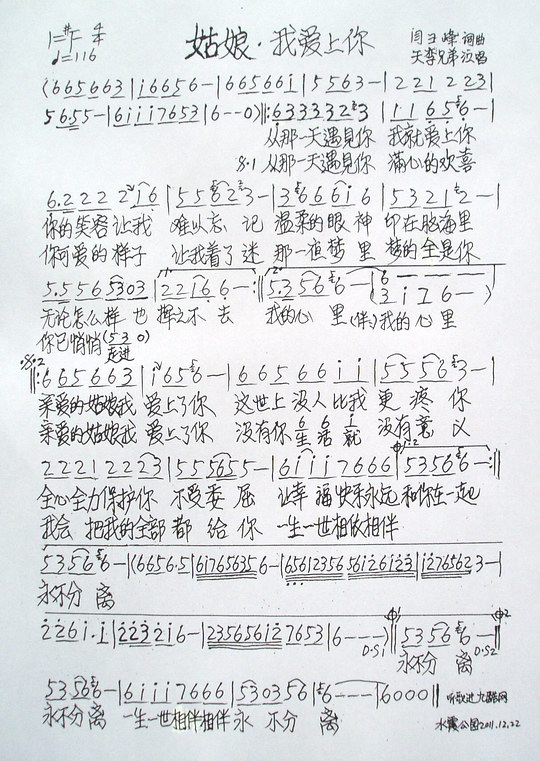 1=#F 4/4
♩=116
姑娘·我爱上你
闫玉峰 词曲
天李兄弟 演唱
(665663|i6656-|665661|5563-|221223|
5655-|6iii7653|6--0)||:6333323|11656-|
从那一天遇见你 我就爱上你
8·1 从那一天遇见你 满心的欢喜
6.222 216|55623-|366616|53212-|
你的笑容让我 难以忘记 温柔的眼神 印在脑海里
你可爱的样子 让我着了迷 那一夜梦里 梦的全是你
5.556 5303|22166-:||5.3566-(3i76--)
无论怎么样也 挥之不去 我的心里(伴)我的心里
你已悄悄(530)
走进
||:665663|i656-|6656611|55563-|
亲爱的姑娘我 爱上了你 这世上没人比我 更疼你
亲爱的姑娘我 爱上了你 没有你生活就 没有意义
2221 2223|55565 5-|6iii7666|53566-:||
全心全力保护你 不受委屈 让幸福快乐永远和你在一起
我会把我的全部都给你 一生一世相依相伴
53566-|(6656·5|61765635 6-|
永不分离
226i·i|22321 6-|
6---)
D·S1
53566-||
D·S2
永不分离
53566-|6iii7666|530356|6---|6000||
永不分离 一生一世相伴相伴永不分离
听歌进九酷网
水霞公园2011.12.22